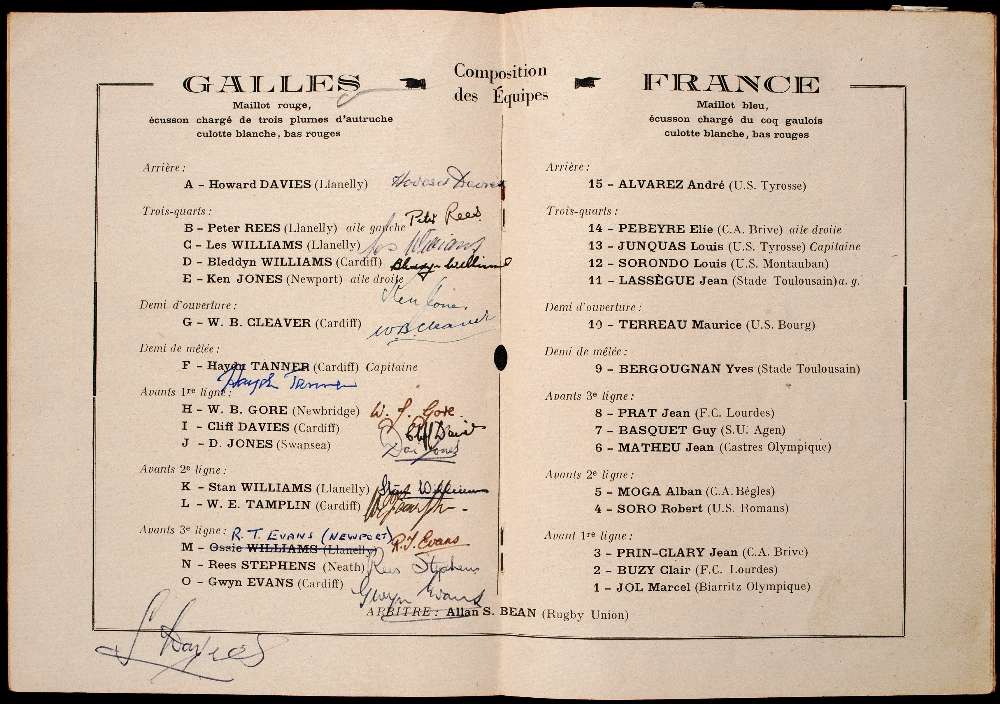 Composition
des Équipes
GALLES
Maillot rouge,
écusson chargé de trois plumes d'autruche
culotte blanche, bas rouges
Arrière :
A - Howard DAVIES (Llanelly)
Trois-quarts :
B - Peter REES (Llanelly) aile gauche Peter Rees
C - Les WILLIAMS (Llanelly) Les Williams
D - Bleddyn WILLIAMS (Cardiff) Bleddyn Williams
E - Ken JONES (Newport) aile droite
Ken Jones
Demi d'ouverture :
G - W. B. CLEAVER (Cardiff) W B Cleaver
Demi de mêlée :
F - Haydn TANNER (Cardiff) Capitaine
Haydn Tanner
Avants 1re ligne :
H - W. B. GORE (Newbridge) W. J. Gore
I - Cliff DAVIES (Cardiff) Cliff Davies
J - D. JONES (Swansea) Dai Jones
Avants 2e ligne :
K - Stan WILLIAMS (Llanelly) Stan Williams
L - W. E. TAMPLIN (Cardiff)
Avants 3e ligne : R. T. EVANS (NEWPORT)
M - Ossie WILLIAMS (Llanelly) R. T. Evans
N - Rees STEPHENS (Neath) Rees Stephens
O - Gwyn EVANS (Cardiff) Gwyn Evans
FRANCE
Maillot bleu,
écusson chargé du coq gaulois
culotte blanche, bas rouges
Arrière :
15 - ALVAREZ André (U.S. Tyrosse)
Trois-quarts :
14 - PEBEYRE Elie (C.A. Brive) aile droite
13 - JUNQUAS Louis (U.S. Tyrosse) Capitaine
12 - SORONDO Louis (U.S. Montauban)
11 - LASSÈGUE Jean (Stade Toulousain) a. g.
Demi d'ouverture :
10 - TERREAU Maurice (U.S. Bourg)
Demi de mêlée :
9 - BERGOUGNAN Yves (Stade Toulousain)
Avants 3e ligne :
8 - PRAT Jean (F.C. Lourdes)
7 - BASQUET Guy (S.U. Agen)
6 - MATHEU Jean (Castres Olympique)
Avants 2e ligne :
5 - MOGA Alban (C.A. Bègles)
4 - SORO Robert (U.S. Romans)
Avant 1re ligne :
3 - PRIN-CLARY Jean (C.A. Brive)
2 - BUZY Clair (F.C. Lourdes)
1 - JOL Marcel (Biarritz Olympique)
ARBITRE : Allan S. BEAN (Rugby Union)